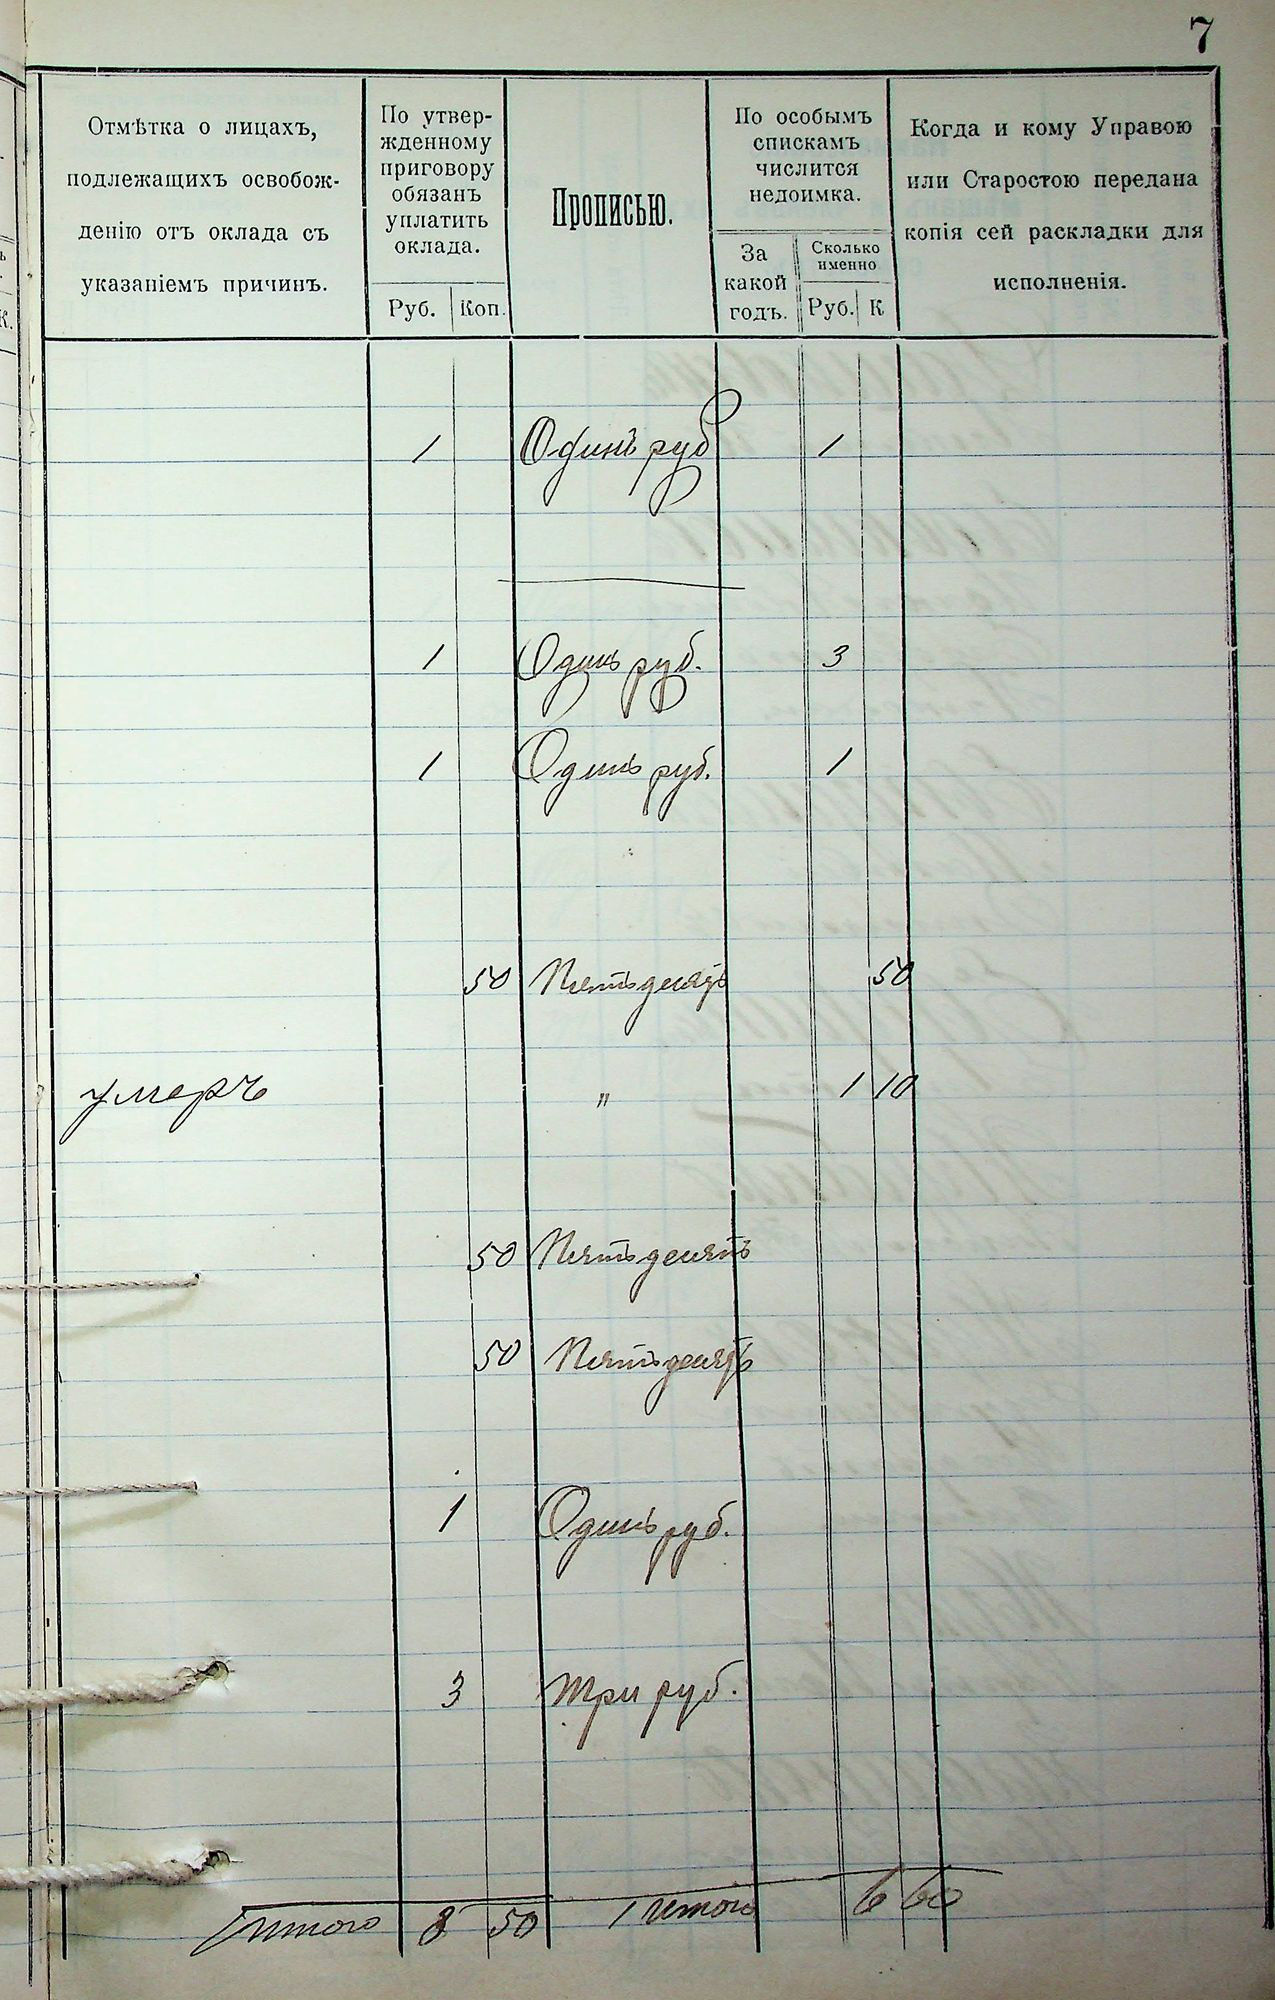 7
Отмѣтка о лицахъ,
подлежащихъ освобож-
денію отъ оклада съ
указаніемъ причинъ.
По утвер-
жденному
приговору
обязанъ
уплатить
оклада.
Руб. Коп.
Прописью.
По особымъ
спискамъ
числится
недоимка.
За
какой
годъ.
Сколько
именно
Руб. К
Когда и кому Управою
или Старостою передана
копія сей раскладки для
исполненія.
К.
1 Одинъ руб 1
1 Одинъ руб. 3
1 Одинъ руб. 1
50 Пятьдесятъ 50
умеръ " 1 10
50 Пятьдесятъ
50 Пятьдесятъ
1 Одинъ руб.
3 Три руб.
Итого 8 50 Итого 6 60